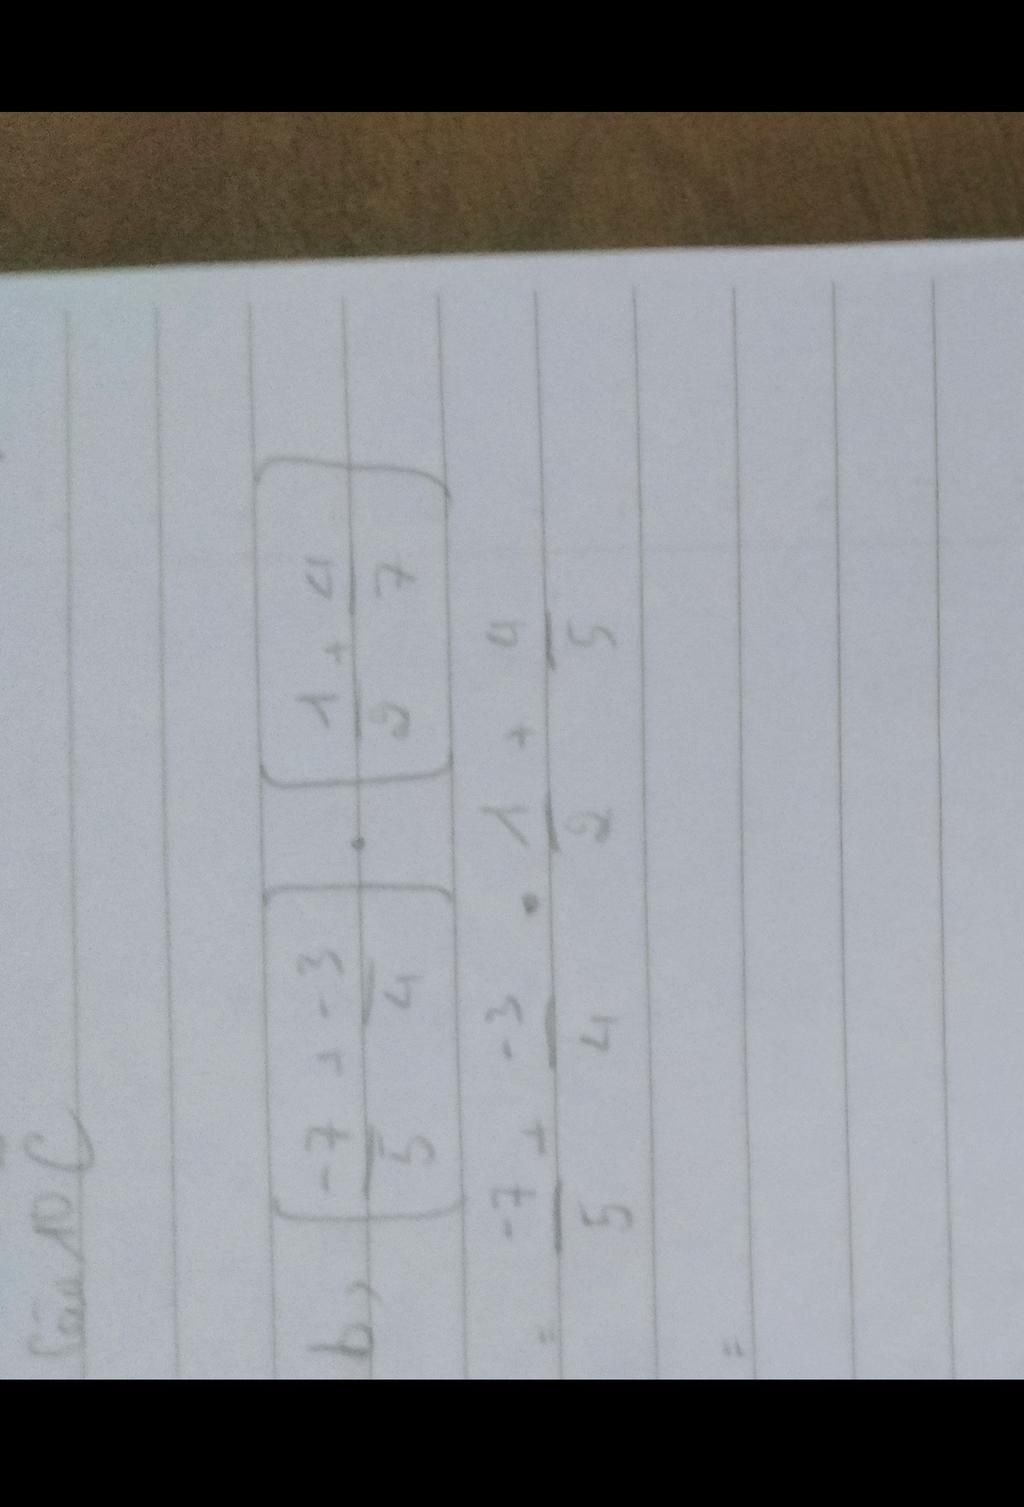 Câu 10 C
b, (-7/5 + -3/4) . (1/2 + 4/7)
= -7/5 + -3/4 . 1/2 + 4/5
=